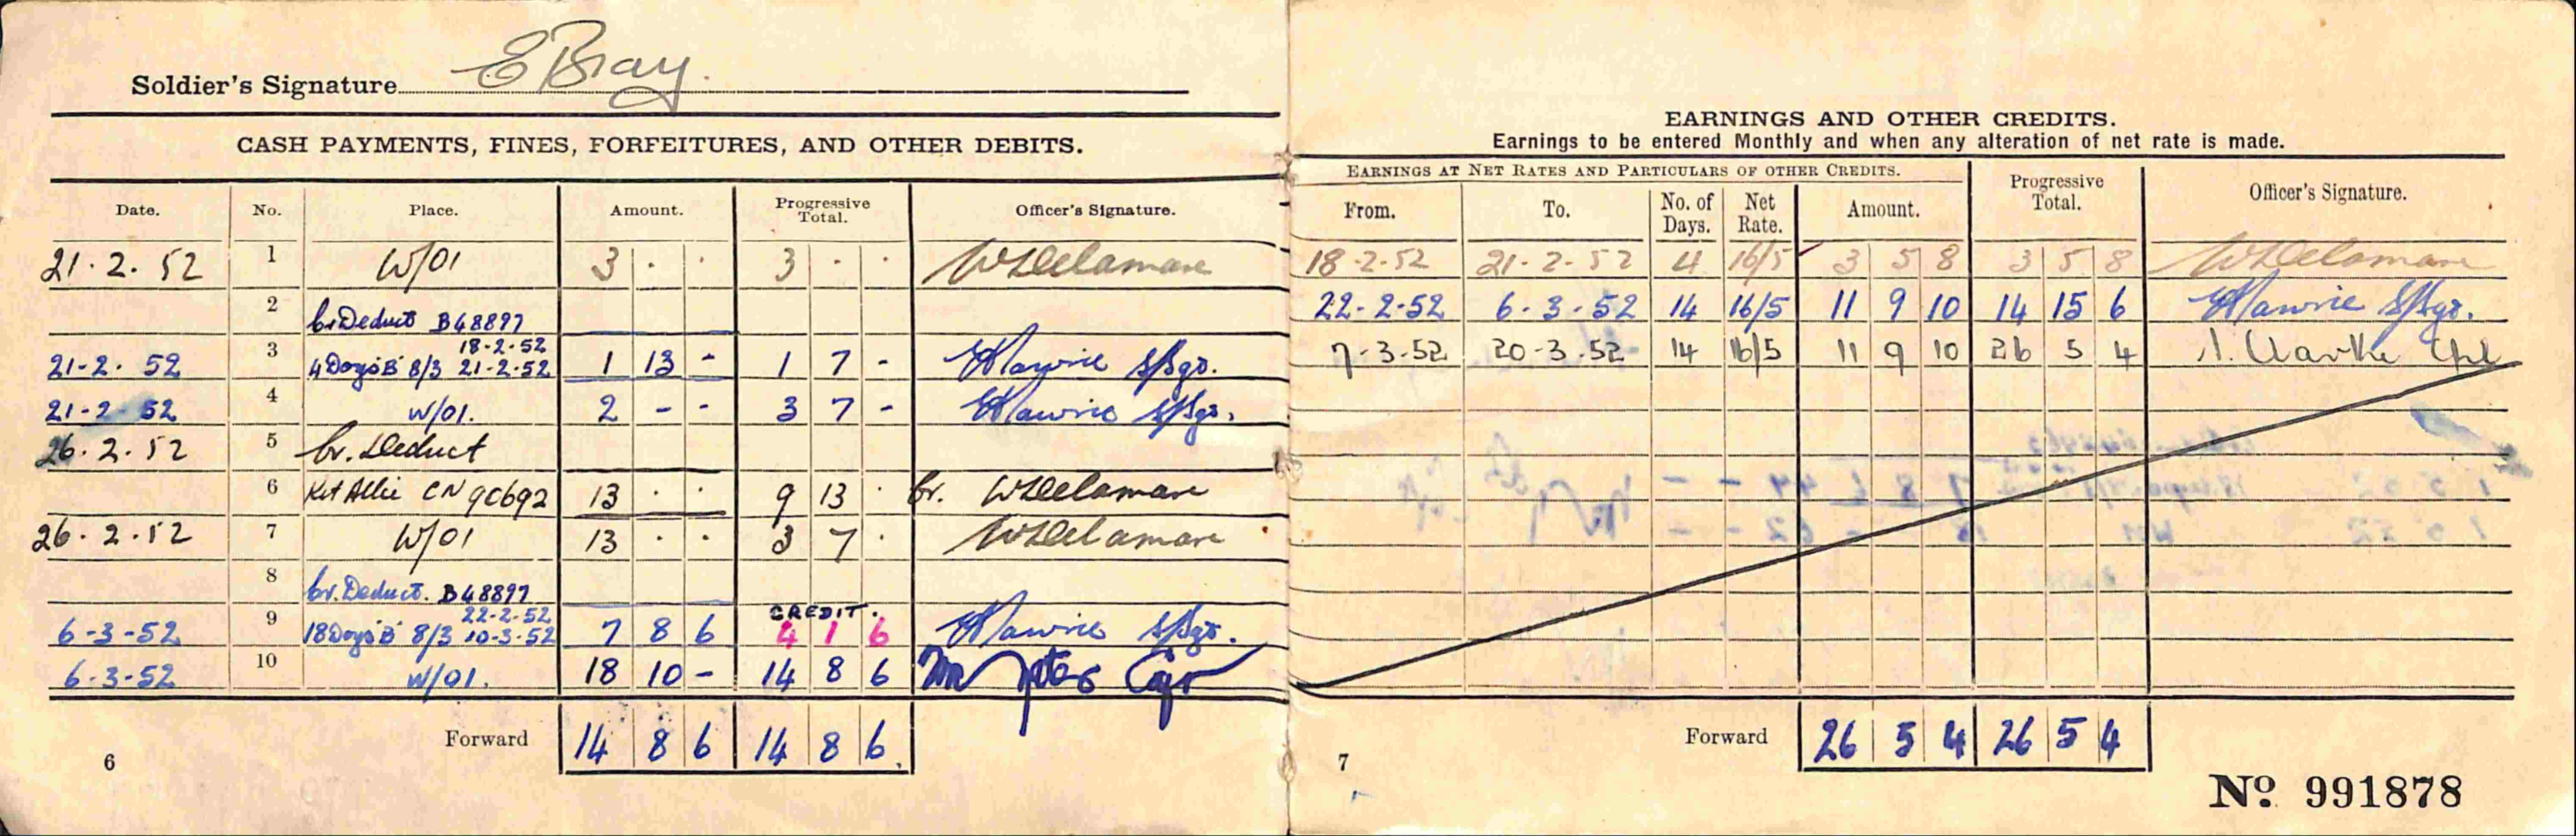 Soldier's Signature E Bray.
CASH PAYMENTS, FINES, FORFEITURES, AND OTHER DEBITS.
Date. No. Place. Amount. Progressive Total. Officer's Signature.
21.2.52 1 W/01 3 . . 3 . . W Delamare
2 Cr. Deduct B48897
18-2-52
21-2-52 3 4 Days 'B' 8/3 21-2-52 1 13 - 1 7 - S/Sgt.
21-2-52 4 W/01. 2 - - 3 7 - S/Sgt.
26.2.52 5 Cr. Deduct
6 Kit Allce CN 90692 13 . . 9 13 . Cr. W Delamare
26.2.52 7 W/01 13 . . 3 7 . W Delamare
8 Cr. Deduct. B48897
22-2-52 CREDIT.
6-3-52 9 18 Days 'B' 8/3 10-3-52 7 8 6 4 1 6 S/Sgt.
6-3-52 10 W/01. 18 10 - 14 8 6
Forward 14 8 6 14 8 6.
6
EARNINGS AND OTHER CREDITS.
Earnings to be entered Monthly and when any alteration of net rate is made.
EARNINGS AT NET RATES AND PARTICULARS OF OTHER CREDITS. Progressive Total. Officer's Signature.
From. To. No. of Days. Net Rate. Amount.
18-2-52 21-2-52 4 16/5 3 5 8 3 5 8 W Delamare
22-2-52 6-3-52 14 16/5 11 9 10 14 15 6 S/Sgt.
7-3-52 20-3-52 14 16/5 11 9 10 26 5 4 Clarke Cpl
Forward 26 5 4 26 5 4
7
No. 991878